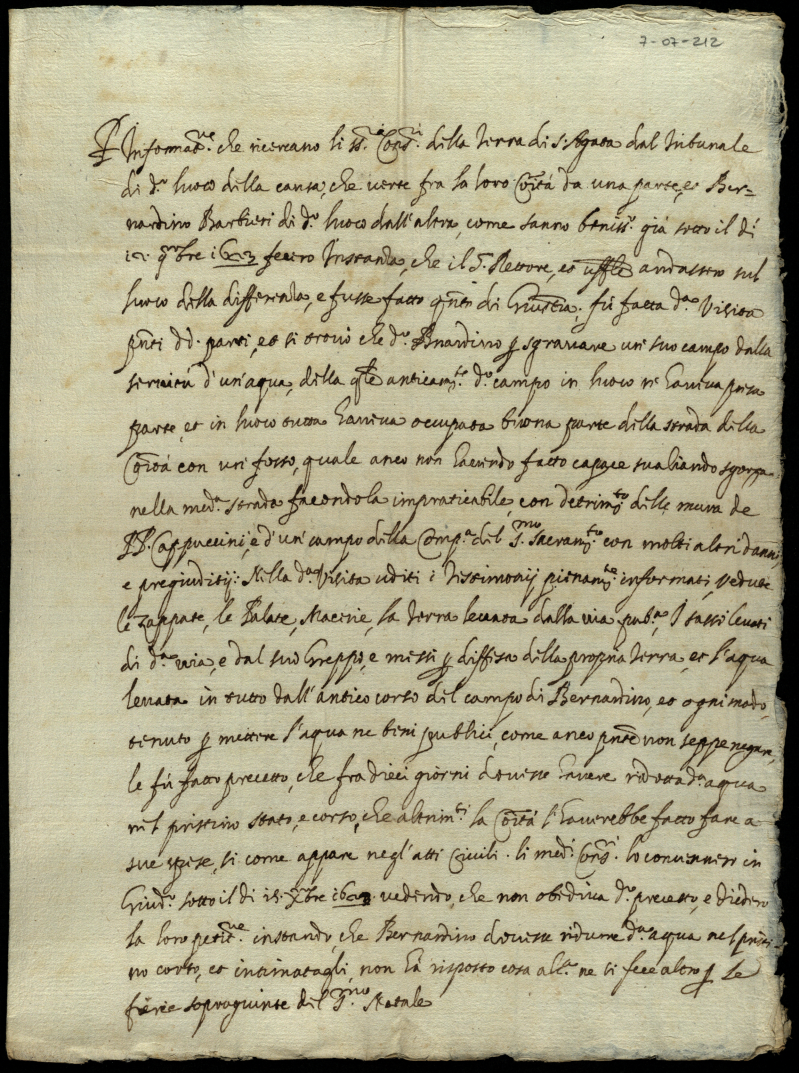 7-07-212
P Informat.ne che ricercano li ss.ri Cons.ri della Terra di S. Agata dal Tribunale
di d.o luoco della causa, che verte fra la loro Cõità da una parte, et Ber-
nardino Barbieri di d.o luoco dall'altra, come sanno beniss.o già sotto il dì
9bre fecero Instanza, che il S.r Rettore, et uffle andassero sul
luoco della differenza, e fusse fatto q.nto di Giustitia, fù fatta d.a Visita
pñti d.d. parti, et si trovò che d.o Bnardino p sgravare un suo campo dalla
servitù d'un'aqua, della qle anticam.te d.o campo in luoco n'haveva presa
parte, et in luoco tutta haveva occupata buona parte della strada della
Cõità con un fosso, quale anco non havendo fatto capace sualiando sgorga
nella med.a strada facendola impraticabile, con detrim.to delle mura de
PP. Cappuccini, e d'un campo della Comp.a del S.mo Sacram.to con molti altri danni,
e pregiuditij. Nella d.a Visita uditi i Testimonij pienam.te informati, vedute
le zappate, le Palate, Macerie, la terra levata dalla via pub.ca, I sassi levati
di d.a via, e dal suo Greppo, e messi p diffesa della propria terra, et l'aqua
levata in tutto dall'antico corso del campo di Bernardino, et ogni modo,
tenuto p mettere l'aqua ne beni publici, come anco pnte non seppe negare,
le fù fatto precetto, che fra dieci giorni dovesse havere ridotta d.a aqua
nel pristino stato, e corso, che altrim.ti la Cõità l'haverebbe fatto fare a
sue spese, si come appare negl'atti Civili. li med.i Cons.ri lo convennero in
Giud.o sotto il dì 15 Xbre vedendo, che non obediva d.o precetto, e diedero
la loro petit.ne instando, che Bernardino dovesse ridurre d.a aqua nel pristi
no corso, et intimatagli, non hà risposto cosa alc.a ne si fece altro p le
ferie sopragiunte del S.mo Natale